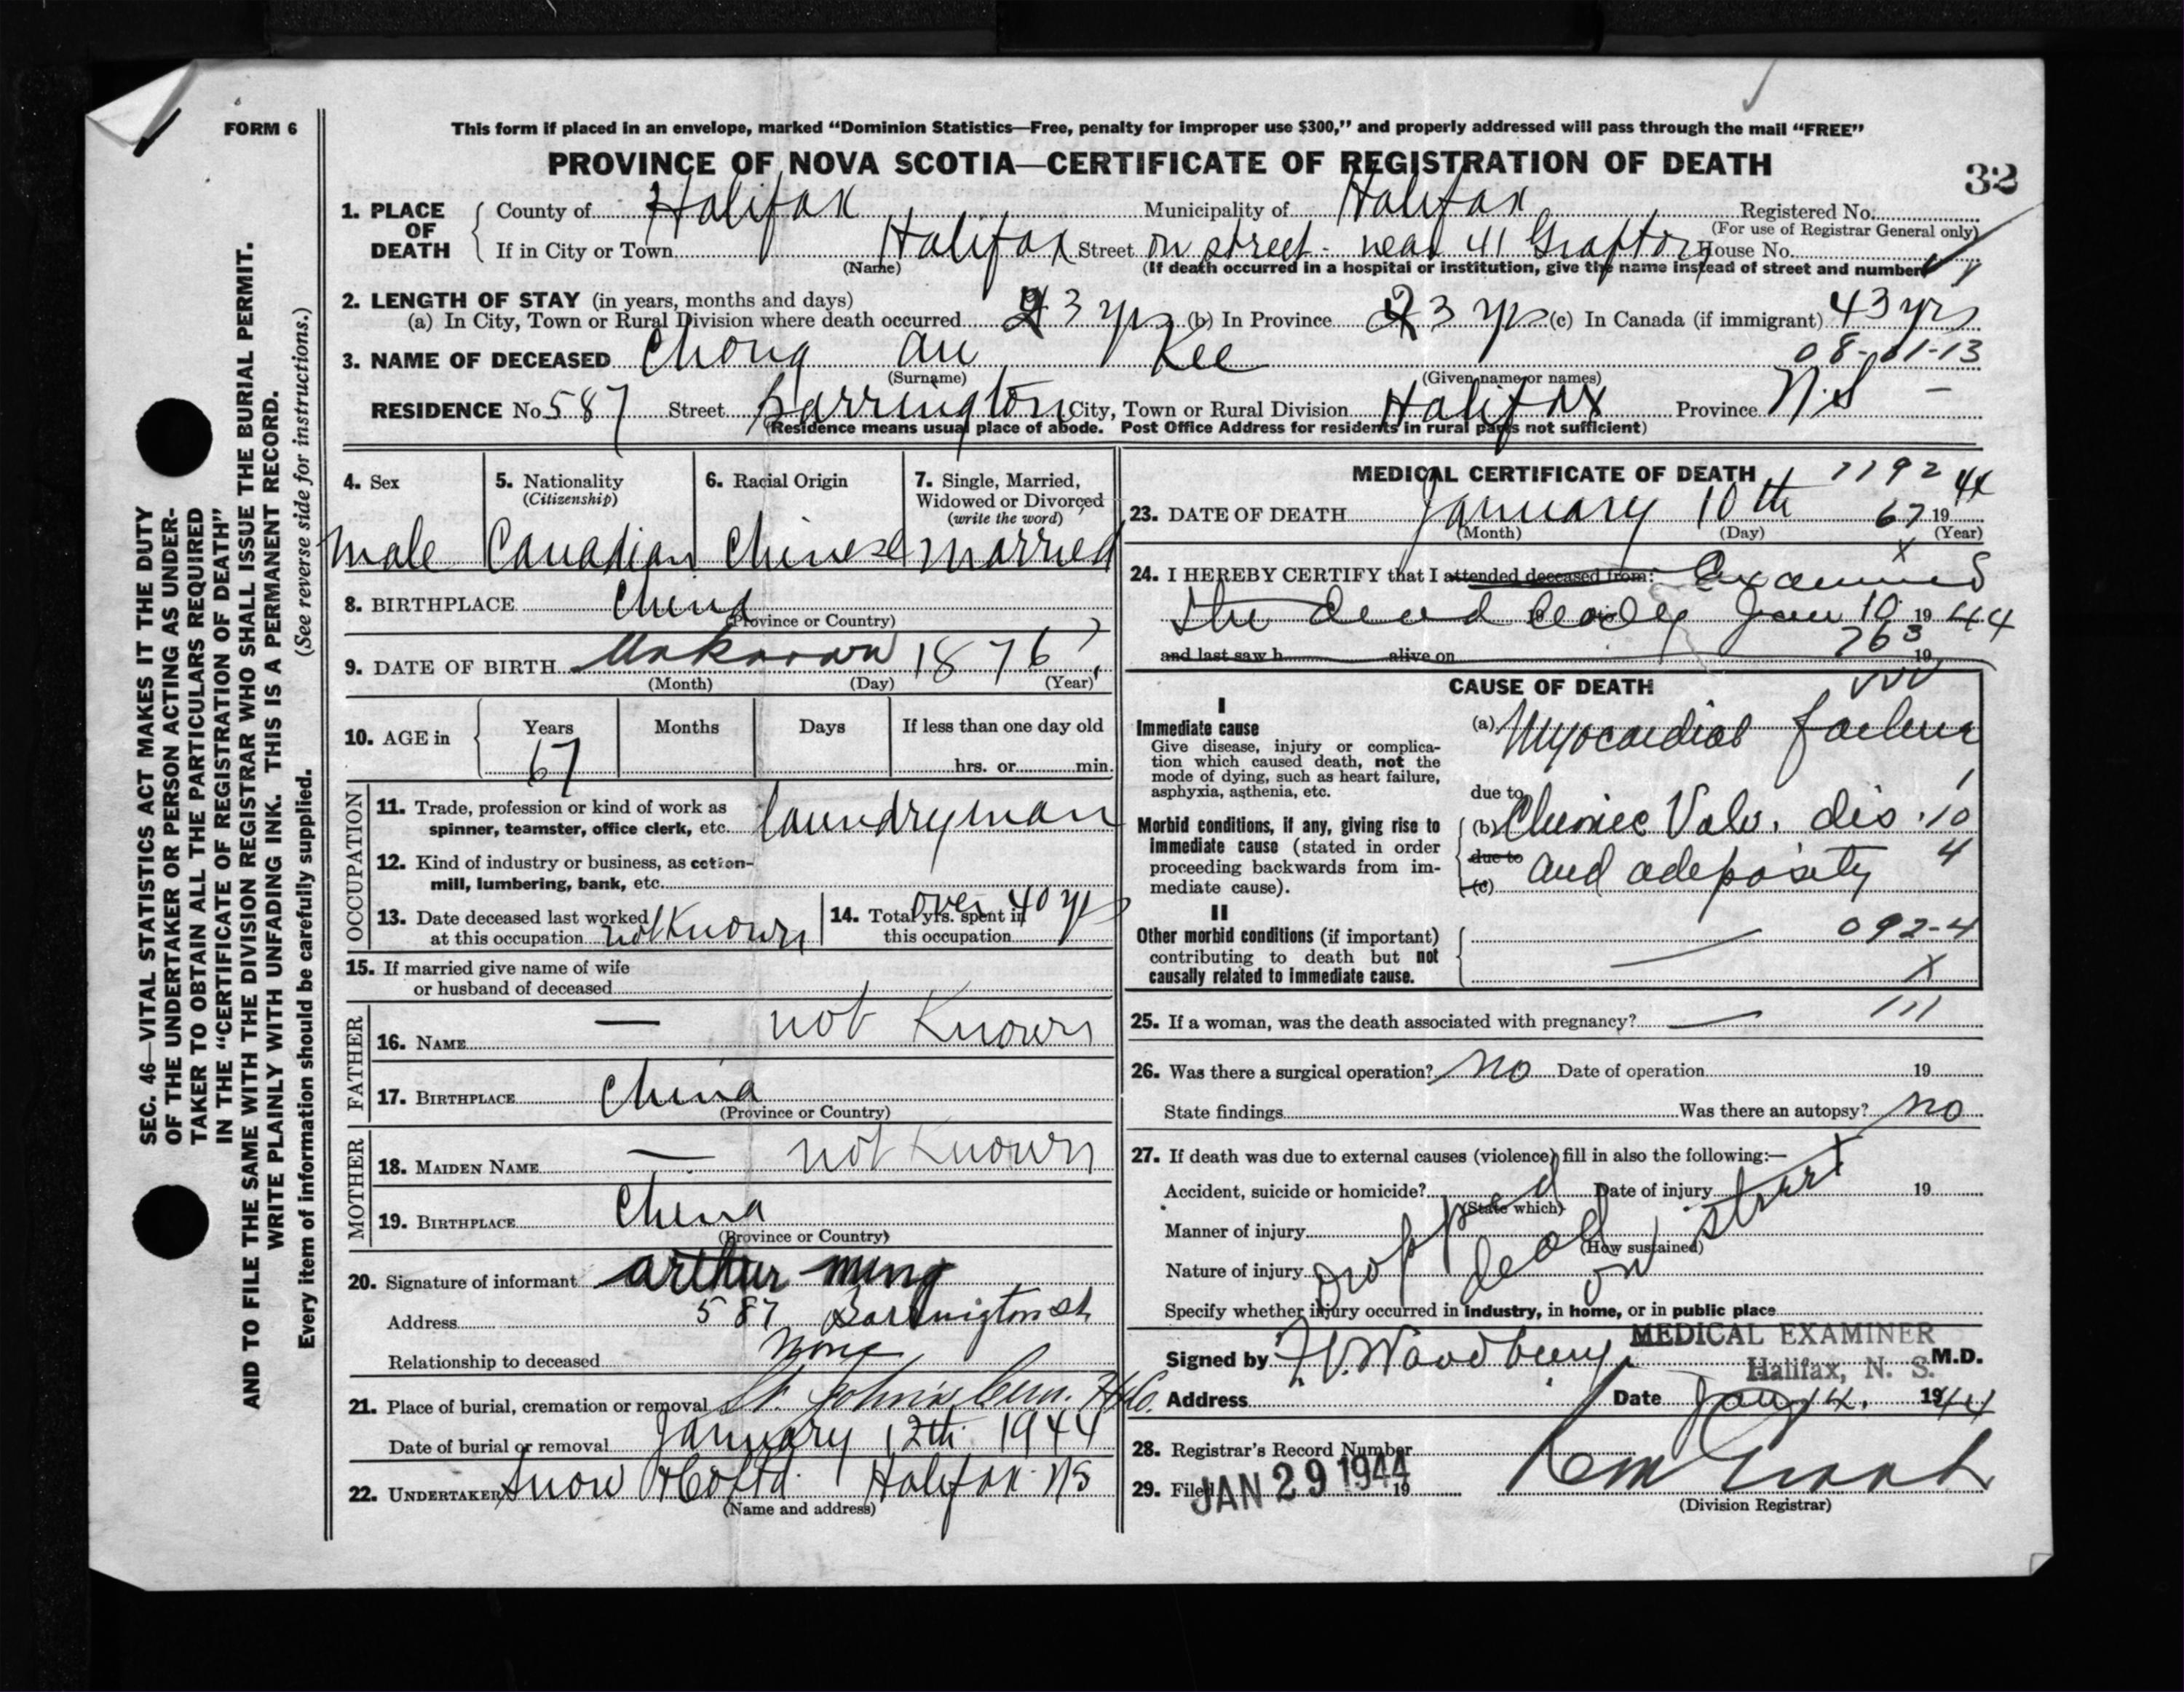 FORM 6
SEC. 46—VITAL STATISTICS ACT MAKES IT THE DUTY
OF THE UNDERTAKER OR PERSON ACTING AS UNDER-
TAKER TO OBTAIN ALL THE PARTICULARS REQUIRED
IN THE "CERTIFICATE OF REGISTRATION OF DEATH"
AND TO FILE THE SAME WITH THE DIVISION REGISTRAR WHO SHALL ISSUE THE BURIAL PERMIT.
WRITE PLAINLY WITH UNFADING INK. THIS IS A PERMANENT RECORD.
Every item of information should be carefully supplied. (See reverse side for instructions.)
This form if placed in an envelope, marked "Dominion Statistics—Free, penalty for improper use $300," and properly addressed will pass through the mail "FREE"
PROVINCE OF NOVA SCOTIA—CERTIFICATE OF REGISTRATION OF DEATH
32
1. PLACE OF DEATH County of Halifax Municipality of Halifax Registered No.
(For use of Registrar General only)
If in City or Town Halifax Street on street - near 41 Grafton House No.
(Name) (If death occurred in a hospital or institution, give the name instead of street and number)
2. LENGTH OF STAY (in years, months and days)
(a) In City, Town or Rural Division where death occurred 23 yrs (b) In Province 23 yrs (c) In Canada (if immigrant) 43 yrs
08-01-13
3. NAME OF DECEASED Chong au Kee
(Surname) (Given name or names)
RESIDENCE No. 587 Street Barrington City, Town or Rural Division Halifax Province N.S —
(Residence means usual place of abode. Post Office Address for residents in rural parts not sufficient)
4. Sex 5. Nationality (Citizenship) 6. Racial Origin 7. Single, Married, Widowed or Divorced (write the word)
male Canadian Chinese Married
8. BIRTHPLACE China
(Province or Country)
9. DATE OF BIRTH Unknown 1876
(Month) (Day) (Year)
10. AGE in Years Months Days If less than one day old
67 hrs. or min.
OCCUPATION
11. Trade, profession or kind of work as
spinner, teamster, office clerk, etc. laundryman
12. Kind of industry or business, as cotton-
mill, lumbering, bank, etc.
13. Date deceased last worked
at this occupation not Known
14. Total yrs. spent in
this occupation over 40 yrs
15. If married give name of wife
or husband of deceased
FATHER
16. NAME — not Known
17. BIRTHPLACE China
(Province or Country)
MOTHER
18. MAIDEN NAME — not Known
19. BIRTHPLACE China
(Province or Country)
20. Signature of informant arthur ming
Address 587 Barrington St
Relationship to deceased None
21. Place of burial, cremation or removal St. John's Cem. Hfx Co.
Date of burial or removal January 12th 1944
22. UNDERTAKER Snow & Co Ltd. Halifax NS
(Name and address)
MEDICAL CERTIFICATE OF DEATH 1192
23. DATE OF DEATH January 10th 67 1944
(Month) (Day) (Year)
24. I HEREBY CERTIFY that I attended deceased from: Examined
the dead body Jan 10 1944
763
and last saw h alive on 19
CAUSE OF DEATH
I
Immediate cause
Give disease, injury or complica-
tion which caused death, not the
mode of dying, such as heart failure,
asphyxia, asthenia, etc.
(a) Myocardial failure
due to
Morbid conditions, if any, giving rise to
immediate cause (stated in order
proceeding backwards from im-
mediate cause).
(b) Chronic Valv. dis. 10
due to
(c) and adeposity 4
II
Other morbid conditions (if important)
contributing to death but not
causally related to immediate cause.
092-4
X
25. If a woman, was the death associated with pregnancy? — 111
26. Was there a surgical operation? NO Date of operation 19
State findings Was there an autopsy? NO
27. If death was due to external causes (violence) fill in also the following:—
Accident, suicide or homicide? Date of injury 19
(State which)
Manner of injury
(How sustained)
Nature of injury Dropped dead on street
Specify whether injury occurred in industry, in home, or in public place
Signed by Woodbury MEDICAL EXAMINER
Halifax, N. S. M.D.
Address Date Jany 1944
28. Registrar's Record Number
29. Filed JAN 29 1944 19
(Division Registrar)